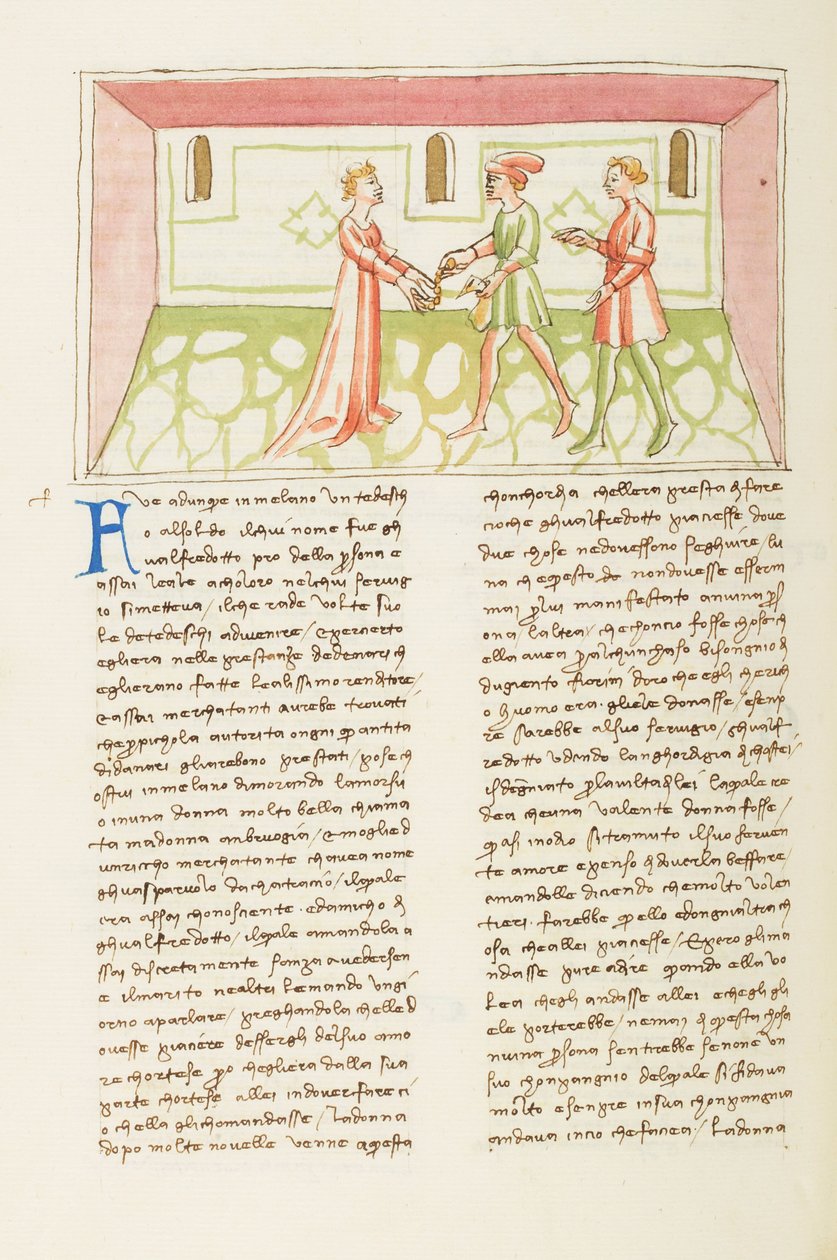 Fve adunque in melano un tedesch
o al soldo il chui nome fue gh
ualfredotto pro della persona e
assai leale a choloro nel chui servig
io si metteva / il che rade volte suo
le de tedeschi advenire / e percierto
egli era nelle prestanze de denari ch
e gli erano fatte lealissimo renditore /
e assai merchatanti aurebe trovati
che per pichola autorita ongni quantita
di danari gli arebono prestati / pose ch
ostui in melano dimorando l amor su
o in una donna molto bella chiama
ta madonna anbruogia / e moglie d
un riccho merchatante ch avea nome
ghuasparuolo da chatracio / il quale
era assai chonosciente e damicho di
ghualfredotto / il quale amandola a
ssai discretamente sanza avedersen
e il marito ne altri le mando un gi
orno a parlare / preghandola che lle d
ovesse piaciere d essergli del suo amo
re chortese pero ch egli era dalla sua
parte chortese a llei in dover fare ci
o ch ella gli chomandasse / la donna
dopo molte novelle venne a questa
chonchordia ch ell era presta di fare
cio che ghualfredotto piacesse dove
due chose ne dovessono seghuire / lu
na che questo non dovesse esser m
mai per lui manifestato a niuna pers
ona / l altra / che chon cio fosse chosa ch
ella avea per alchun chaso bisongnio di
dugiento fiorini d oro che egli che rich
o huomo era gliele donasse / e senp
re sarebbe al suo servigio / ghualf
redotto udendo la nghordigia di chostei /
isdegniato per la vilta di lei la quale cre
dea che una valente donna fosse /
quasi in odio si tramuto il suo ferven
te amore e penso di doverla beffare /
e mandolle diciendo che molto volen
tieri farebbe quello ed ongni altra ch
osa che a llei piacesse / e pero gli ma
ndasse pure a dire quando ella vo
lea ch egli andasse a llei e ch egli gli
ele porterebbe / ne mai di questa chosa
niuna persona sentirebbe se none un
suo chonpangnio del quale si fidava
molto e senpre in sua chonpangnia
andava in cio che facea / la donna